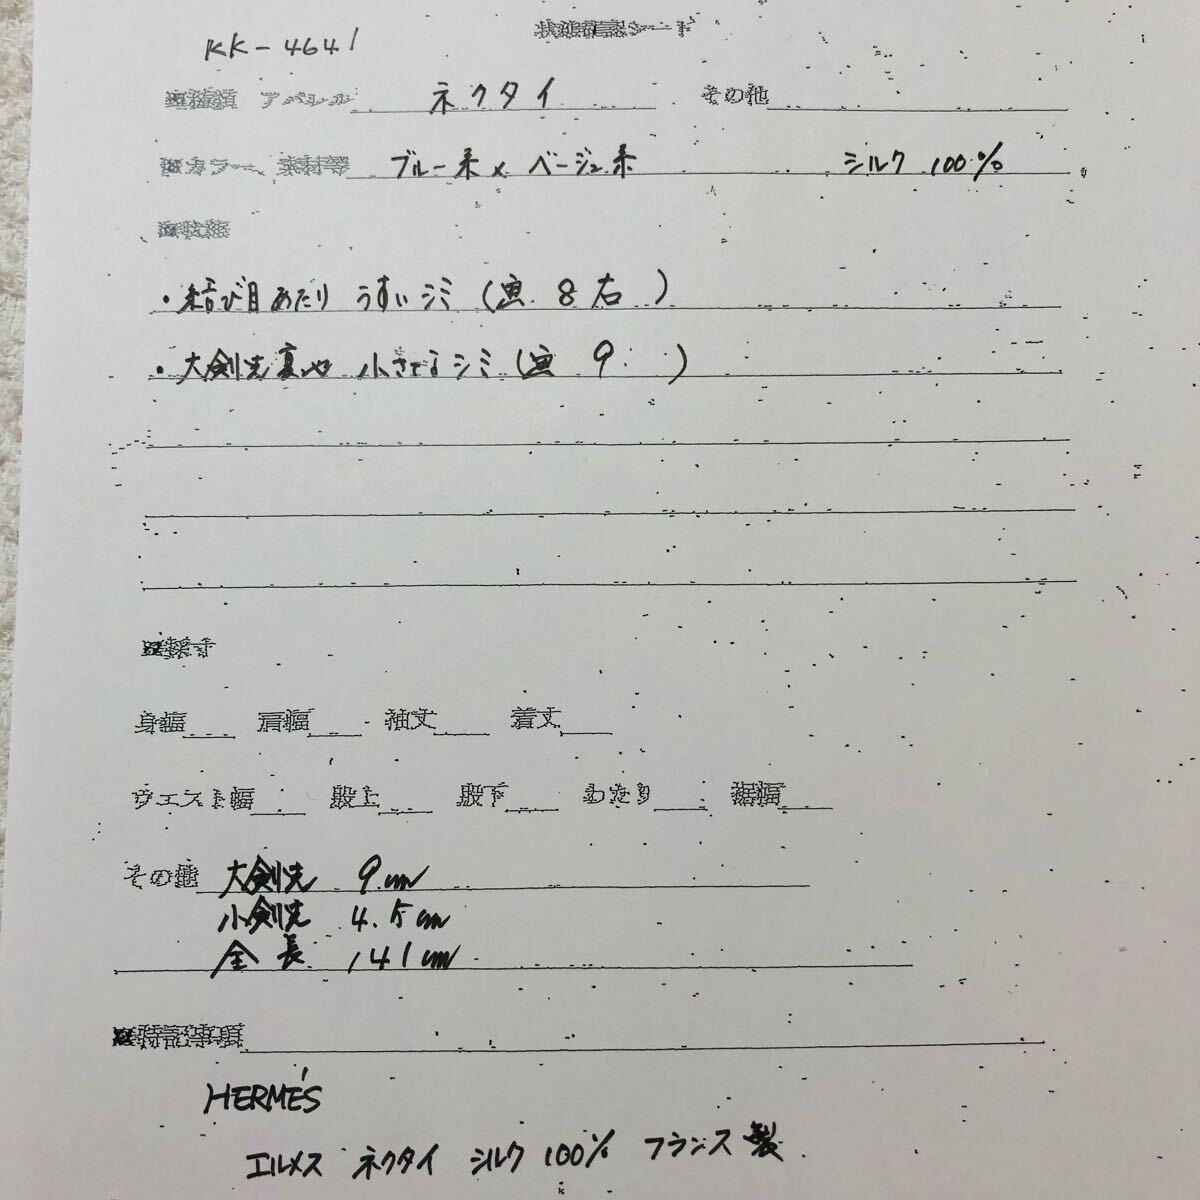 KK-4641
状態確認シート
■種類 アパレル ネクタイ その他
■カラー、素材等 ブルー系×ベージュ系 シルク 100%
■状態
・結び目あたり うすいシミ (画 8 右 )
・大剣先裏地 小さなシミ (画 9 )
■採寸
身幅 肩幅 袖丈 着丈
ウエスト幅 股上 股下 わたり 裾幅
その他 大剣先 9cm
小剣先 4.5cm
全長 141cm
■特記事項
HERMÉS
エルメス ネクタイ シルク 100% フランス製